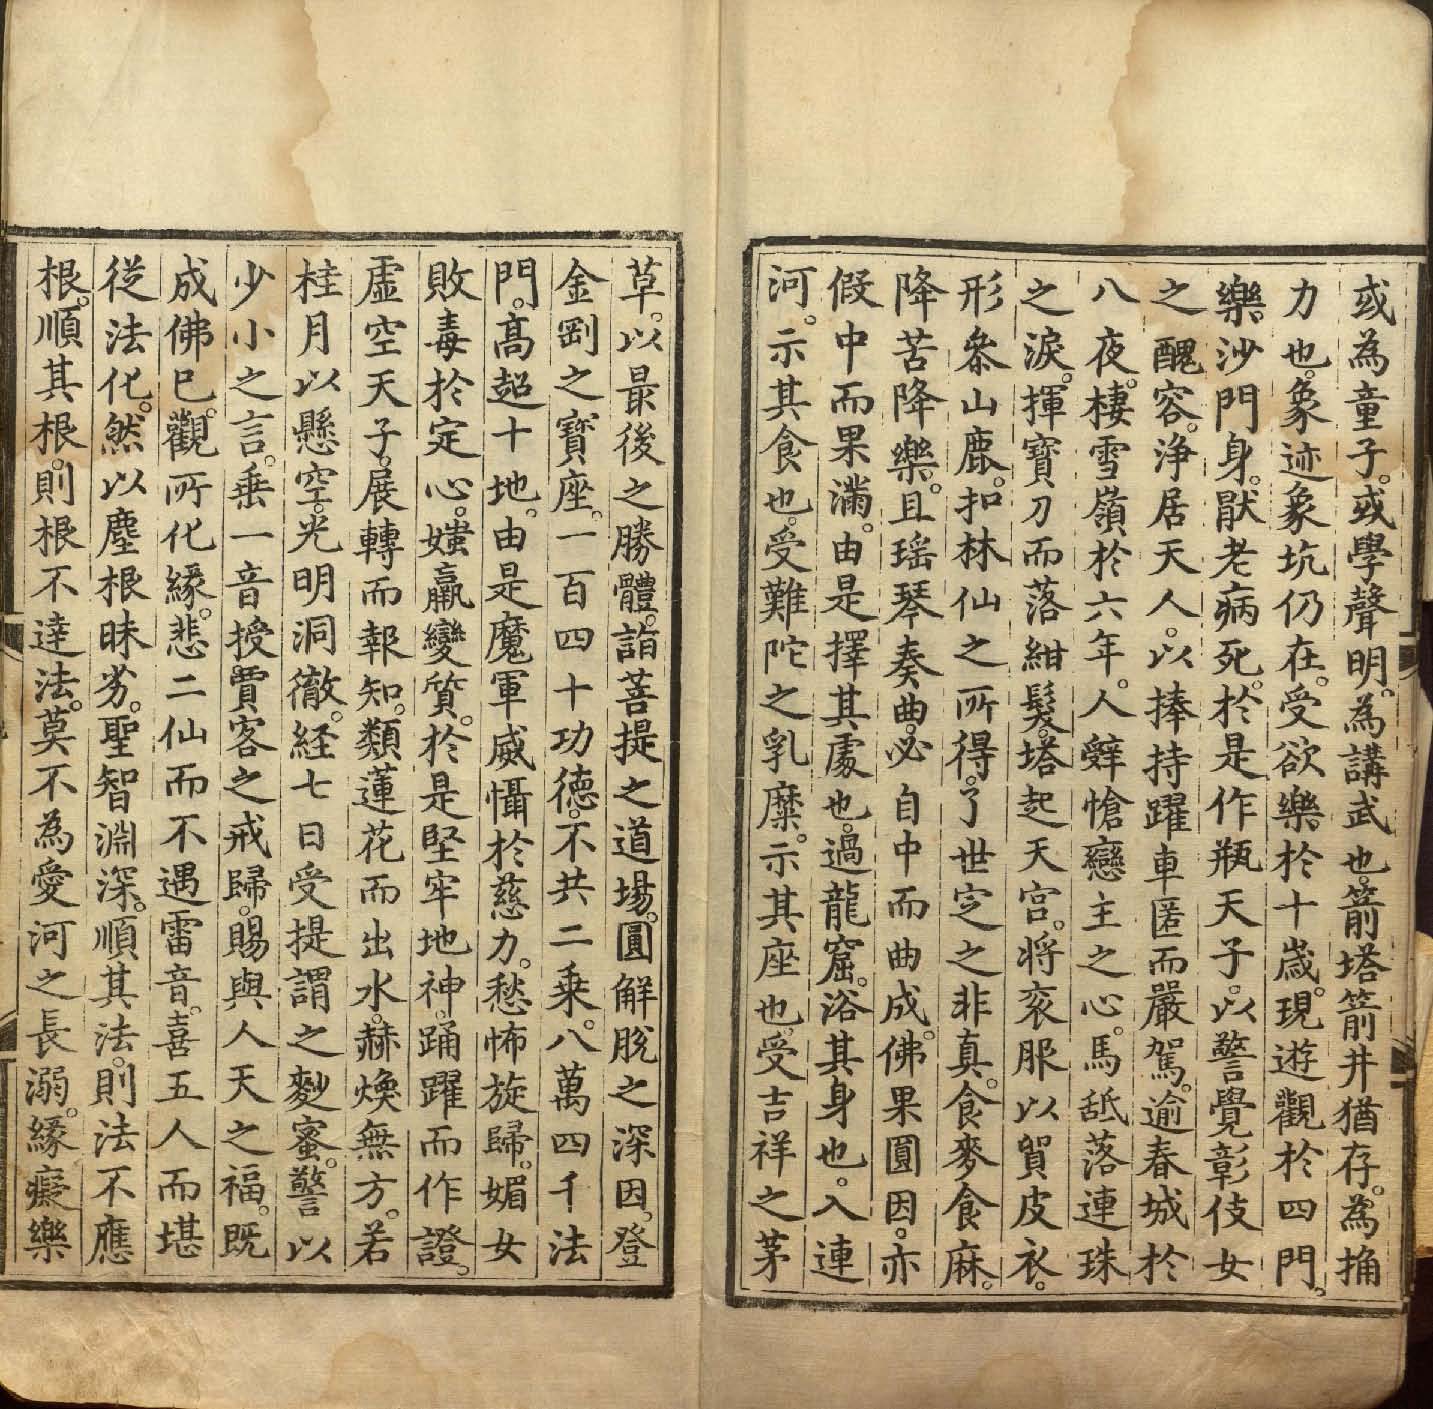 或為童子。或學聲明。為講武也。箭塔箭井猶存。為捔
力也。象迹象坑仍在。受欲樂於十歲。現遊觀於四門。
樂沙門身。猒老病死。於是作瓶天子。以警覺彰伎女
之醜容。淨居天人。以捧持躍車匿而嚴駕。逾春城於
八夜。棲雪嶺於六年。人辭愴戀主之心。馬舐落連珠
之淚。揮寶刀而落紺髮。塔起天宮。將衮服以貿皮衣。
形叅山鹿。扣林仙之所得。了世定之非真。食麥食麻。
降苦降樂。且瑶琴奏曲。必自中而曲成。佛果圓因。亦
假中而果滿。由是擇其處也。過龍窟。浴其身也。入連
河。示其食也。受難陀之乳糜。示其座也。受吉祥之茅
草。以最後之勝體。詣菩提之道場。圓解脫之深因。登
金剛之寶座。一百四十功德。不共二乗。八萬四千法
門。高超十地。由是魔軍威懾於慈力。愁怖旋歸。媚女
敗毒於定心。媸羸變質。於是堅牢地神。踊躍而作證。
虛空天子。展轉而報知。類蓮花而出水。赫煥無方。若
桂月以懸空。光明洞徹。経七日受提謂之麨蜜。警以
少小之言。垂一音授賈客之戒歸。賜與人天之福。既
成佛已。觀所化緣。悲二仙而不遇雷音。喜五人而堪
從法化。然以塵根昧劣。聖智淵深。順其法。則法不應
根。順其根。則根不達法。莫不為愛河之長溺。緣癡樂